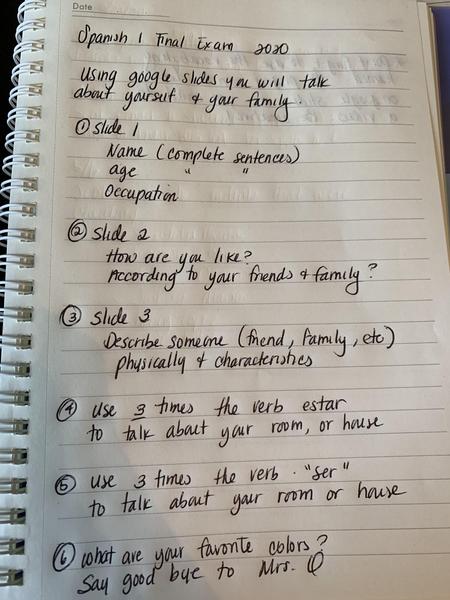 Date
Spanish 1 Final Exam 2020
Using google slides you will talk
about yourself & your family.
① Slide 1
Name (complete sentences)
age " "
Occupation
② Slide 2
How are you like?
According to your friends & family?
③ Slide 3
Describe someone (friend, family, etc)
physically & characteristics
④ Use 3 times the verb estar
to talk about your room, or house
⑤ Use 3 times the verb "ser"
to talk about your room or house
⑥ What are your favorite colors?
Say good bye to Mrs. Q